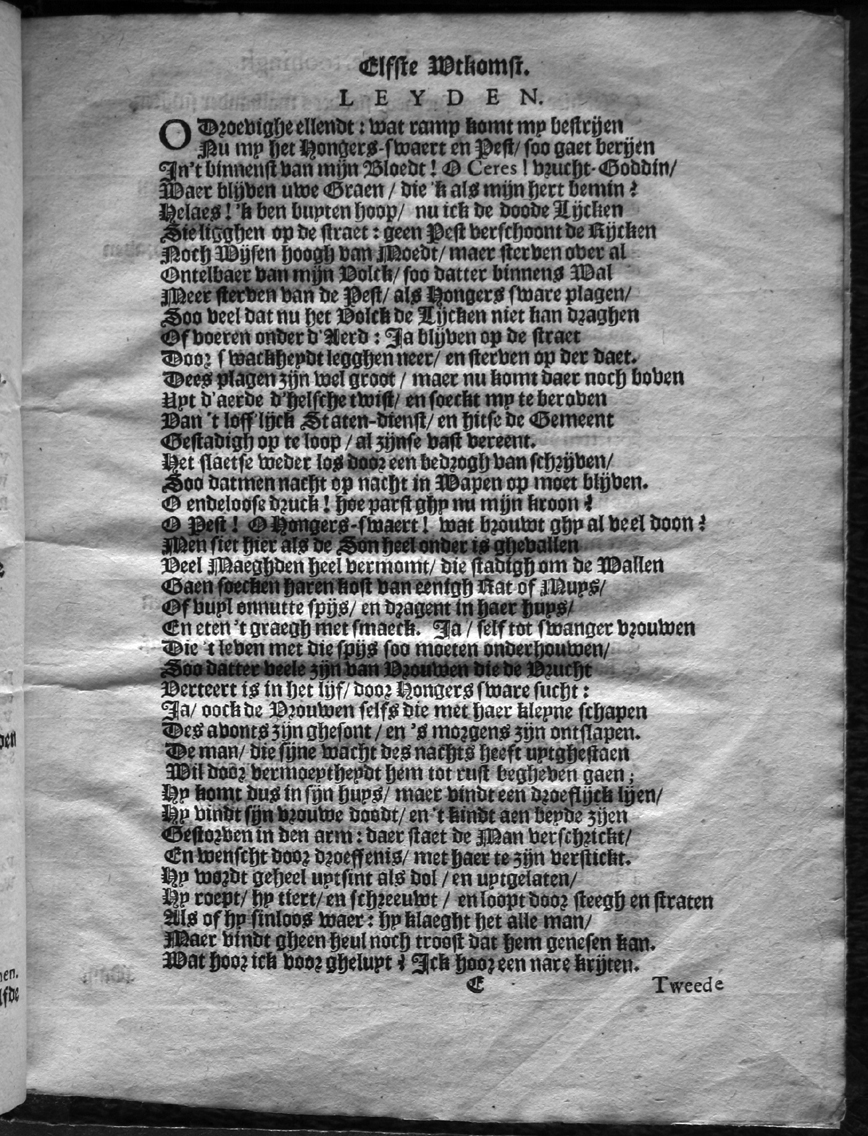 Elfste Wtkomst.
LEYDEN.
O Droevighe ellendt : wat ramp komt my bestrijen
Nu my het Hongers-swaert en Pest/ soo gaet berijen
In't binnenst van mijn Bloedt ! O Ceres ! vrucht-Goddin/
Waer blijven uwe Graen / die 'k als mijn hert bemin ?
Helaes ! 'k ben buyten hoop/ nu ick de doode Lijcken
Sie ligghen op de straet : geen Pest verschoont de Rijcken
Noch Wijsen hoogh van Moedt/ maer sterven over al
Ontelbaer van mijn Volck/ soo datter binnens Wal
Meer sterven van de Pest/ als Hongers sware plagen/
Soo veel dat nu het Volck de Lijcken niet kan draghen
Of voeren onder d'Aerd : Ja blijven op de straet
Door swackheydt legghen neer/ en sterven op der daet.
Dees plagen zijn wel groot / maer nu komt daer noch boven
Uyt d'aerde d'helsche twist/ en soeckt my te beroven
Van 't loff'lijck Staten-dienst/ en hitse de Gemeent
Gestadigh op te loop / al zijnse vast vereent.
Het slaetse weder los door een bedrogh van schrijven/
Soo datmen nacht op nacht in Wapen op moet blijven.
O endeloose druck ! hoe parst ghy nu mijn kroon ?
O Pest ! O Hongers-swaert ! wat brouwt ghy al veel doon ?
Men siet hier als de Son heel onder is ghevallen
Veel Maeghden heel vermomt/ die stadigh om de Wallen
Gaen soecken haren kost van eenigh Kat of Muys/
Of vuyl onnutte spijs/ en dragent in haer huys/
En eten 't graegh met smaeck. Ja/ self tot swanger vrouwen
Die 't leven met die spijs soo moeten onderhouwen/
Soo datter veele zijn van Vrouwen die de Vrucht
Verteert is in het lijf/ door Hongers sware sucht :
Ja/ oock de Vrouwen selfs die met haer kleyne schapen
Des avonts zijn ghesont / en 's morgens zijn ontslapen.
De man/ die sijne wacht des nachts heeft uytghestaen
Wil door vermoeytheydt hem tot rust begheven gaen ;
Hy komt dus in sijn huys/ maer vindt een droeflijck lijen/
Hy vindt sijn vrouwe doodt/ en 't kindt aen beyde zijen
Gestorven in den arm : daer staet de Man verschrickt/
En wenscht door droeffenis/ met haer te zijn verstickt.
Hy wordt geheel uytsint als dol / en uytgelaten/
Hy roept/ hy tiert/ en schreeuwt / en loopt door steegh en straten
Als of hy sinloos waer : hy klaeght het alle man/
Maer vindt gheen heul noch troost dat hem genesen kan.
Wat hoor ick voor gheluyt ? Ick hoor een nare krijten.
E Tweede